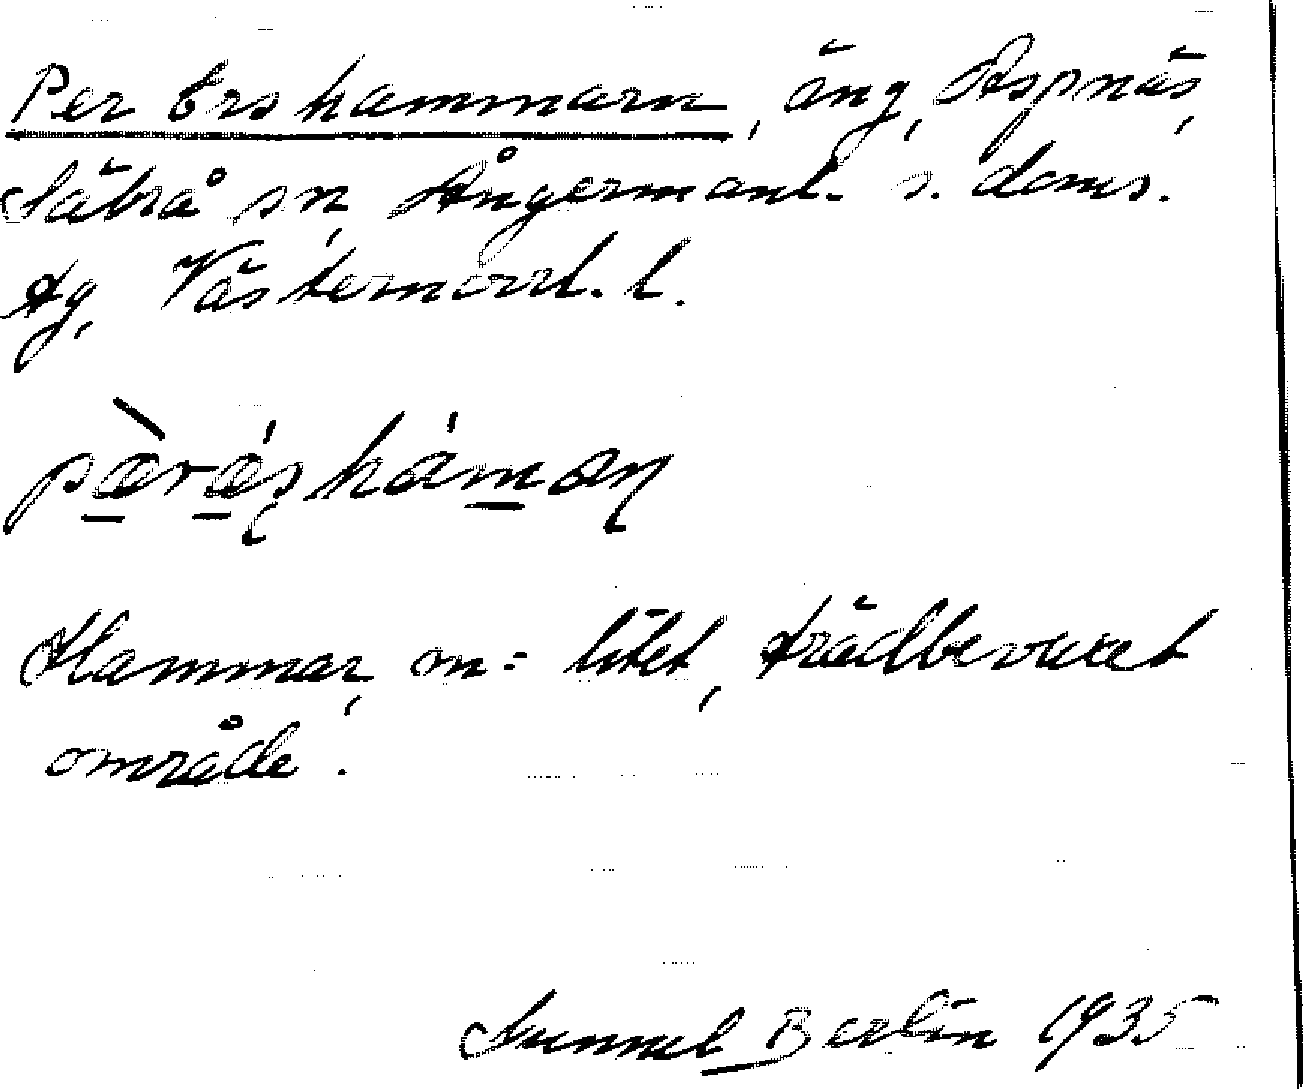 Per Ershammarn, äng, Aspnäs,
Säbrå sn, Ångermanl. s. doms.
tg, Västernorrl. l.
pæ̀ræ̀ṣhámaṇ
Hammar, m = litet, trädbevuxet
område.
Gunnel Berlin 1935